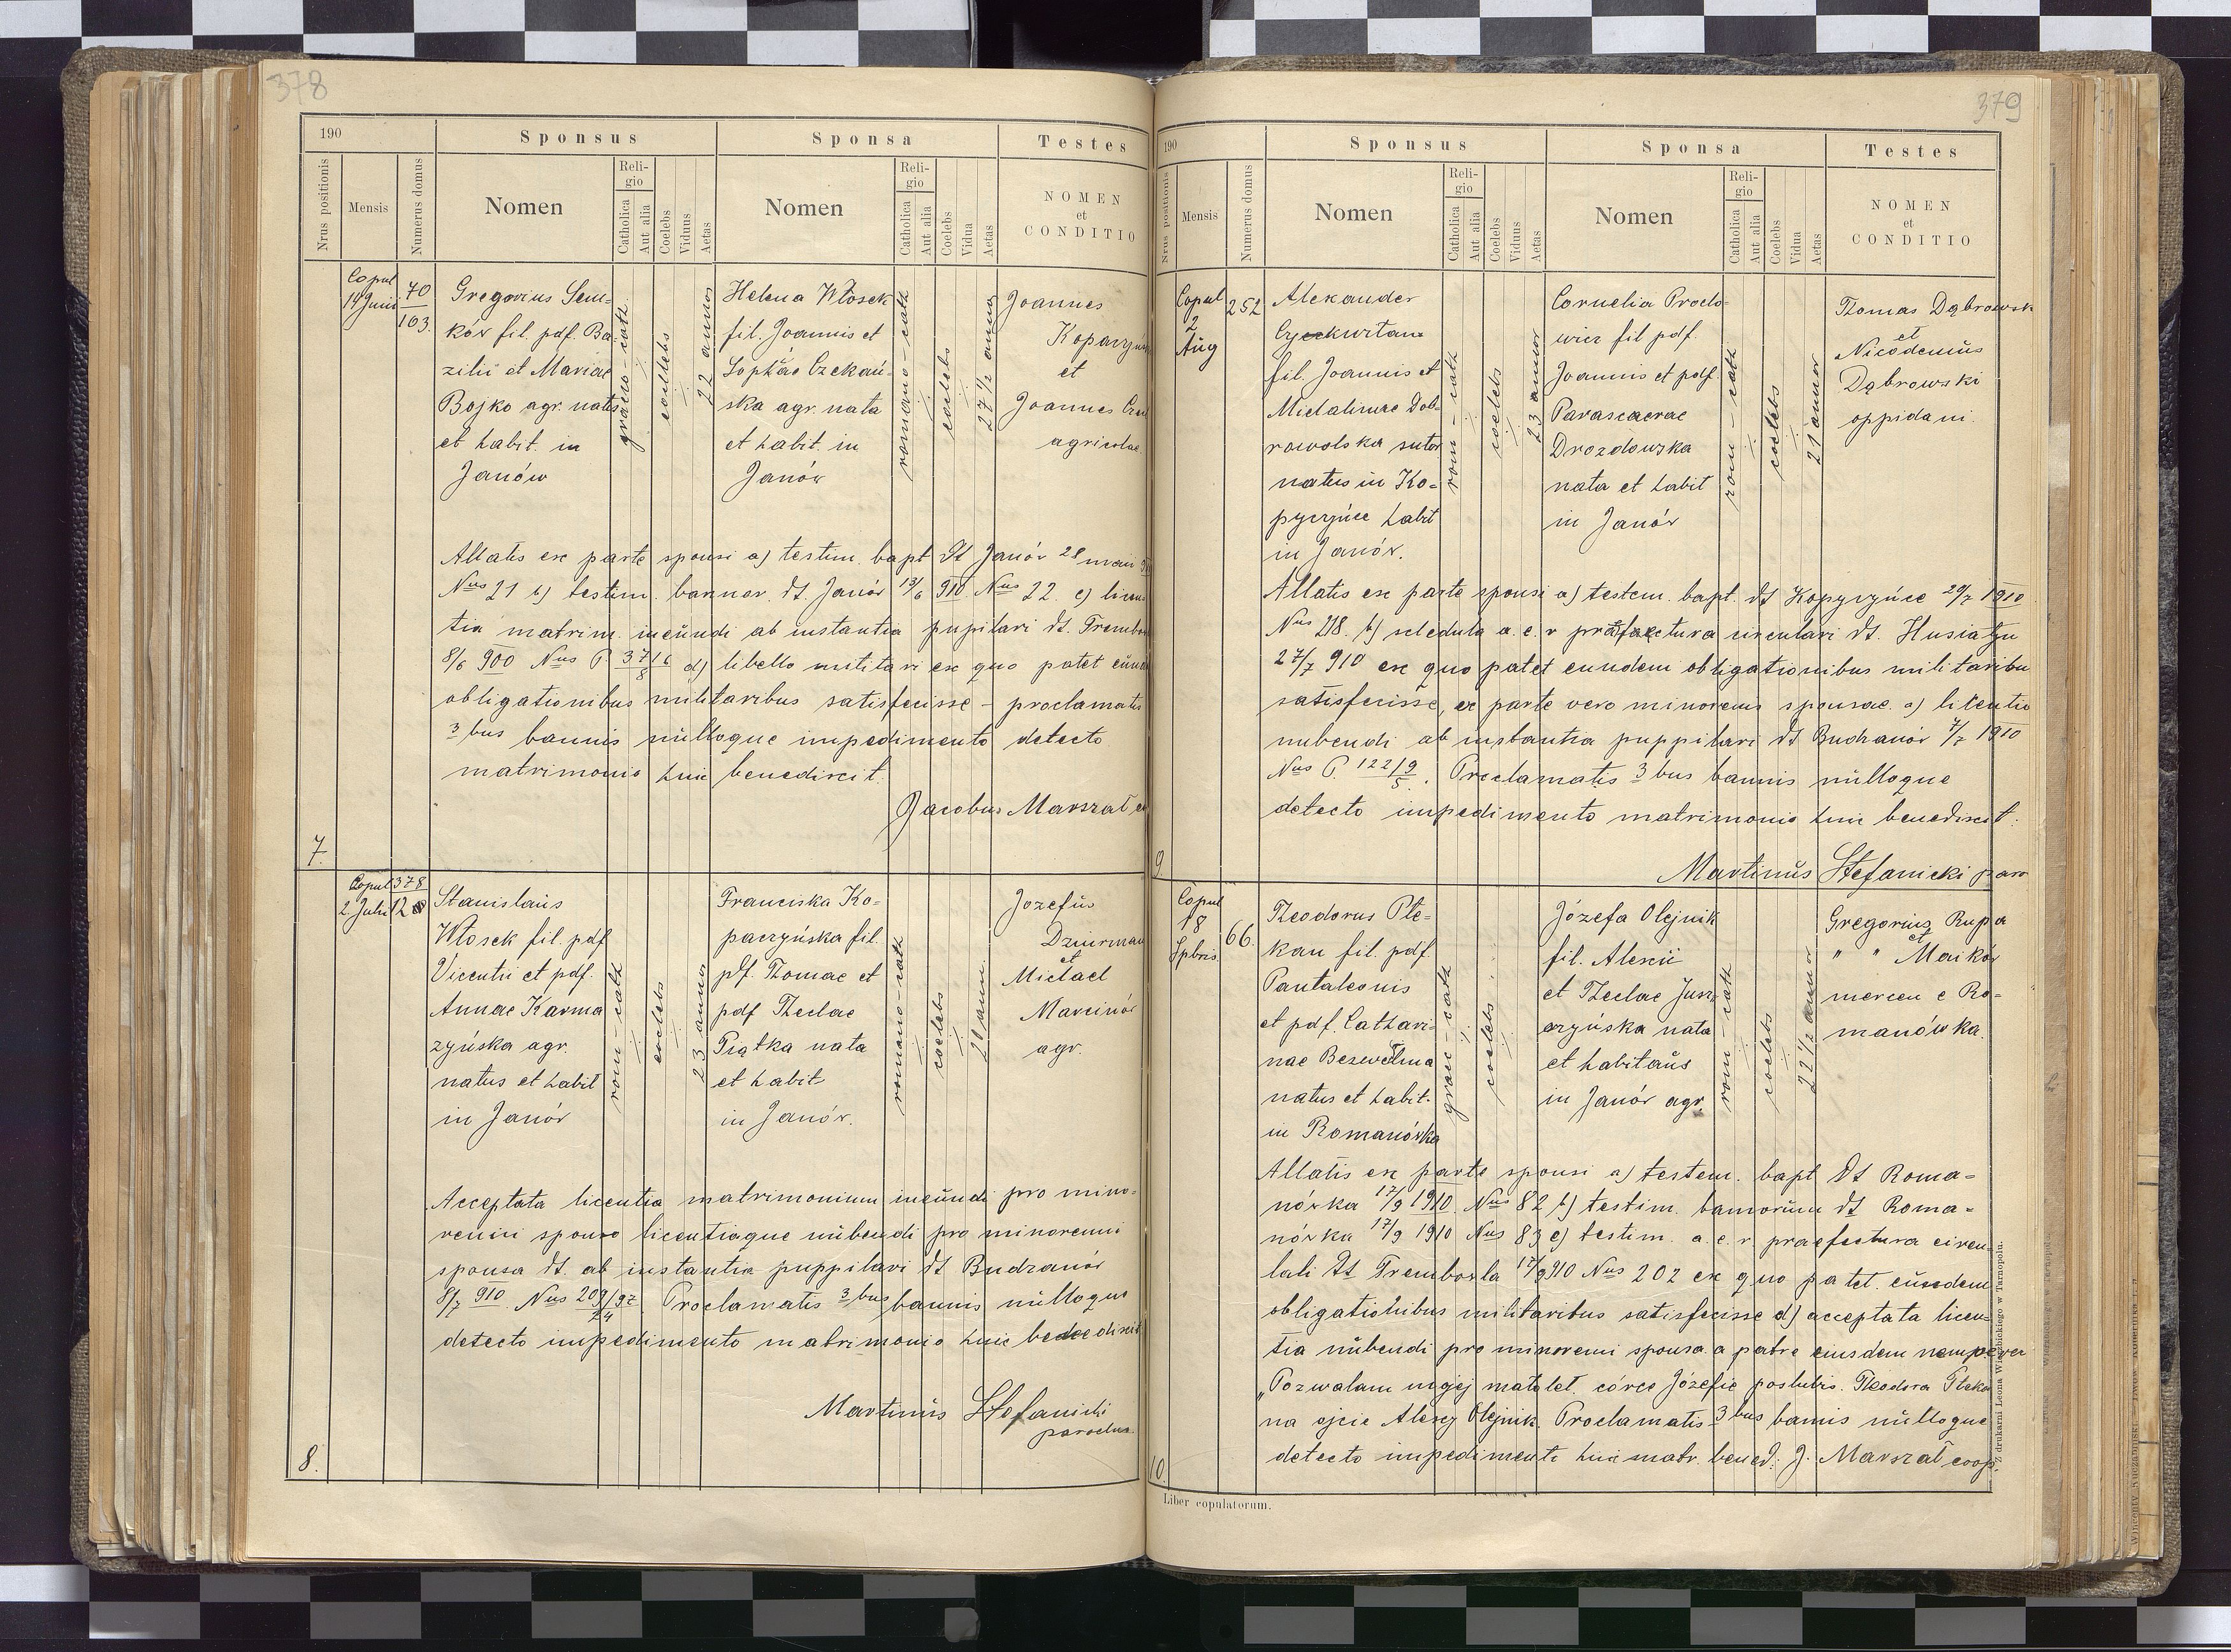 378
190
Sponsus
Sponsa
Testes
Nrus positionis
Mensis
Numerus domus
Nomen
Religio
Catholica
Aut alia
Coelebs
Viduus
Aetas
Nomen
Religio
Catholica
Aut alia
Coelebs
Vidua
Aetas
NOMEN
et
CONDITIO
7.
Copul
19 Junii
70
163.
Gregorius Sem=
ków fil. pdf. Ba
zilii et Mariae
Bojko agr. natus
et habit. in
Janów
graeco-cath.
coelebs
22 annor
Helena Włosek
fil. Joannis et
Sophiae Czekań-
ska agr. nata
et habit. in
Janów
romano-cath
coelebs
27 1/2 annor
Joannes
et
Joannes
agricolae
Allatis ex parte sponsi a) testim. bapt dt Janów 28 maii
Nus 21 b) testim. bannor. dt. Janów 13/6 910 Nus 22. c) licen
tia matrim. ineundi ab instantia pupilari dt. Trembow
8/6 900 Nus P. 37/6 8 d) libello militari ex quo patet
obligationibus militaribus satisfecisse - proclamatis
3 bus bannis nulloque impedimento detecto
matrimonio huic benedixit.
Jacobus Marszał
8.
Copul
2 Julii
378
12
Stanislaus
Włosek fil. pdf
Vicentii et pdf.
Annae Karma
zyńska agr.
natus et habit
in Janów
rom-cath
coelebs
23 annor
Franciska Ko-
paczyńska fil.
pdf. Thomae et
pdf Theclae
Piątka nata
et habit
in Janów.
romano-cath
coelebs
21 ann.
Jozefus
Dziurman
et
Michael
Marcinów
agr.
Acceptata licentia matrimonium ineundi pro mino-
renni sponso licentiaque nubendi pro minorenni
sponsa dt. ab instantia puppilari dt Budzanów
8/7 910 Nus Proclamatis 3 bus bannis nulloque
detecto impedimento matrimonio huic benedixit
Martinus Stefanicki
parochus.
379
190
Sponsus
Sponsa
Testes
Nrus positionis
Mensis
Numerus domus
Nomen
Religio
Catholica
Aut alia
Coelebs
Viduus
Aetas
Nomen
Religio
Catholica
Aut alia
Coelebs
Vidua
Aetas
NOMEN
et
CONDITIO
9.
Copul
2
Aug
252
Alexander
fil. Joannis et
Michalinae Dob-
rowolska sutor
natus in Ko-
pyczyńce habit
in Janów.
rom-cath
coelebs
23 annor
Cornelia Proclo-
wicz fil pdf.
Joannis et pdf.
Parascaevae
Drozdowska
nata et habit
in Janów
rom-cath
coelebs
21 annor
Thomas Dąbrowsk
et
Nicodemus
Dąbrowski
oppidani.
Allatis ex parte sponsi a) testem. bapt. dt Kopyczyńce 29/7 1910
Nus 218. b) schedula a. c. r praefectura circulari dt. Husiatyn
27/7 910 ex quo patet eundem obligationibus militaribu
satisfecisse, ex parte vero minorenis sponsae. a) licentia
nubendi ab instantia puppilari dt Budzanów 7/7 1910
Nus P. 122/9 5. Proclamatis 3 bus bannis nulloque
detecto impedimento matrimonio huic benedixit.
Martinus Stefanicki par
10.
Copul
18
7pbris
66.
Theodorus Ple-
kan fil. pdf.
Pantaleonis
et pdf. Cathari-
nae
natus et habit.
in Romanówka
graec-cath
coelebs
Józefa Olejnik
fil. Alexii
et Theclae Jusz-
czyńska nata
et habitans
in Janów agr.
rom-cath
coelebs
22 1/2 annor
Gregorius Rupa
et
" " Maików
mercen e Ro-
manówka.
Allatis ex parte sponsi a) testem. bapt dt Roma-
nówka 17/9 1910. Nus 82 b) testim. bannorum dt Roma-
nówka 17/9 1910 Nus 83 c) testim. a. c. r. praefectura circu-
lali dt Trembowla 17/9 910 Nus 202 ex quo patet. eundem
obligationibus militaribus satisfecisse d) acceptata licen-
tia nubendi pro minorenni sponsa a patre eiusdem nempe
"Pozwalam mojej małolet. córce Józefie poślubić. Theodora Pleka
na ojcie Alexy Olejnik. Proclamatis 3 bus bannis nulloque
detecto impedimento huic matr. bened: J. Marszał coop.
Liber copulatorum.
Z drukarni Leona Wierzbickiego w Tarnopolu.